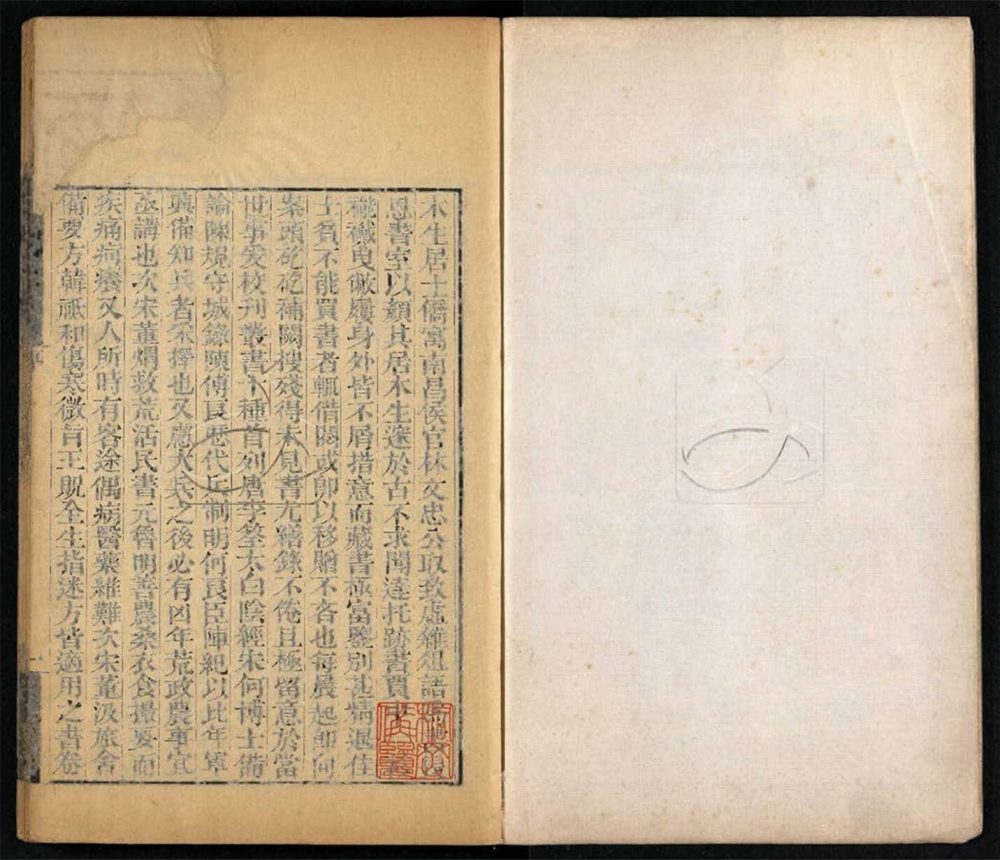 木生居士僑寓南昌侯官林文忠公取致虛雜俎語
恩書室以顏其居木生邃於古不求聞達托跡書賈中
襤褸身外皆不屑措意而藏書極富鑒別甚精遇佳
士貧不能買書者輒借閱或即以移贈不吝也每晨起即向
案頭矻矻補闕搜殘得未見書尤繕錄不倦且極留意於當
世事爰校刊叢書十種首列唐李筌太白陰經宋何博士備
論陳規守城錄陳傅良歷代兵制明何良臣陣紀以比年軍
興備知兵者采擇也又慮大兵之後必有凶年荒政農事宜
亟講也次宋董煟救荒活民書元魯明善農桑衣食撮要而
疾痛疴癢又人所時有客途偶病醫藥維難次宋董汲旅舍
備要方韓祗和傷寒微旨王貺全生指迷方皆適用之書卷